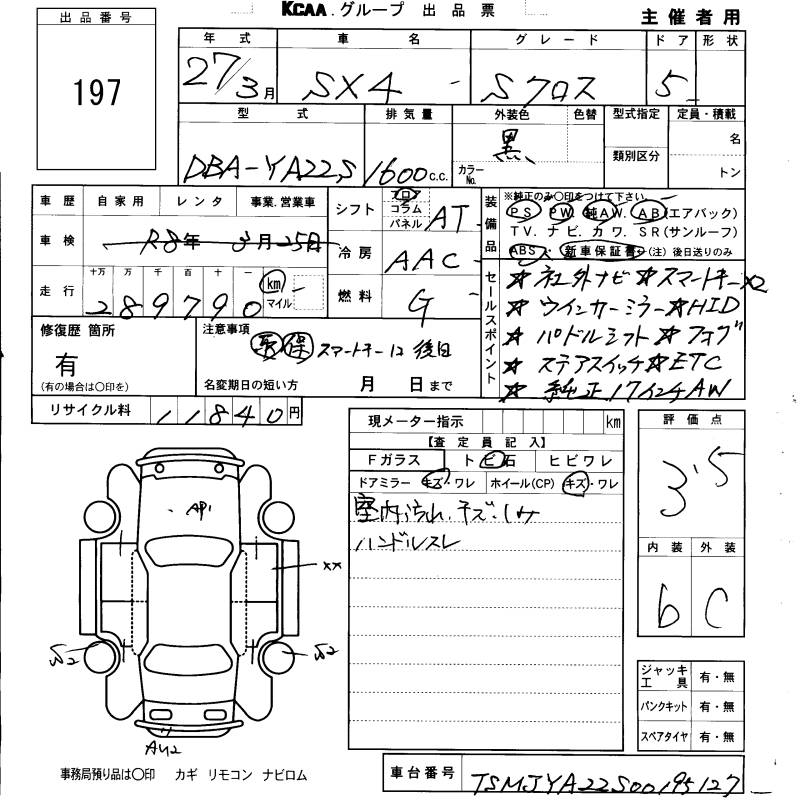 KCAA.グループ 出品票
主催者用
出品番号
197
年式 車名 グレード ドア 形状
27/3月 SX4 Sクロス 5
型式 排気量 外装色 色替 型式指定 定員・積載
DBA-YA22S 1600c.c. 黒 カラーNo. 類別区分 名 トン
車歴 自家用 レンタ 事業.営業車
車検 R8年 3月25日
走行 十万 万 千 百 十 一
289790 km マイル
シフト フロ コラム パネル AT
冷房 AAC
燃料 G
装備品 ※純正のみ○印をつけて下さい
PS PW 純AW. AB(エアバック)
TV. ナビ. カワ. SR(サンルーフ)
ABS. 新車保証書 (注)後日送りのみ
セールスポイント
★ 社外ナビ ★スマートキー×2
★ ウインカーミラー ★HID
★ パドルシフト ★フォグ
★ ステアスイッチ ★ETC
★ 純正17インチAW
修復歴 箇所
有
(有の場合は○印を)
注意事項
保 スマートキー1コ 後日
名変期日の短い方 月 日まで
リサイクル料 11840円
現メーター指示 km
【査定員記入】
Fガラス トビ石 ヒビワレ
ドアミラー キズ・ワレ ホイール(CP) キズ・ワレ
室内汚れ.キズ.シミ
ハンドルスレ
評価点
3.5
内装 外装
b C
AP1
XX
S2
S2
AU2
ジャッキ工具 有・無
パンクキット 有・無
スペアタイヤ 有・無
事務局預り品は○印 カギ リモコン ナビロム
車台番号 TSMJYA22S00195127